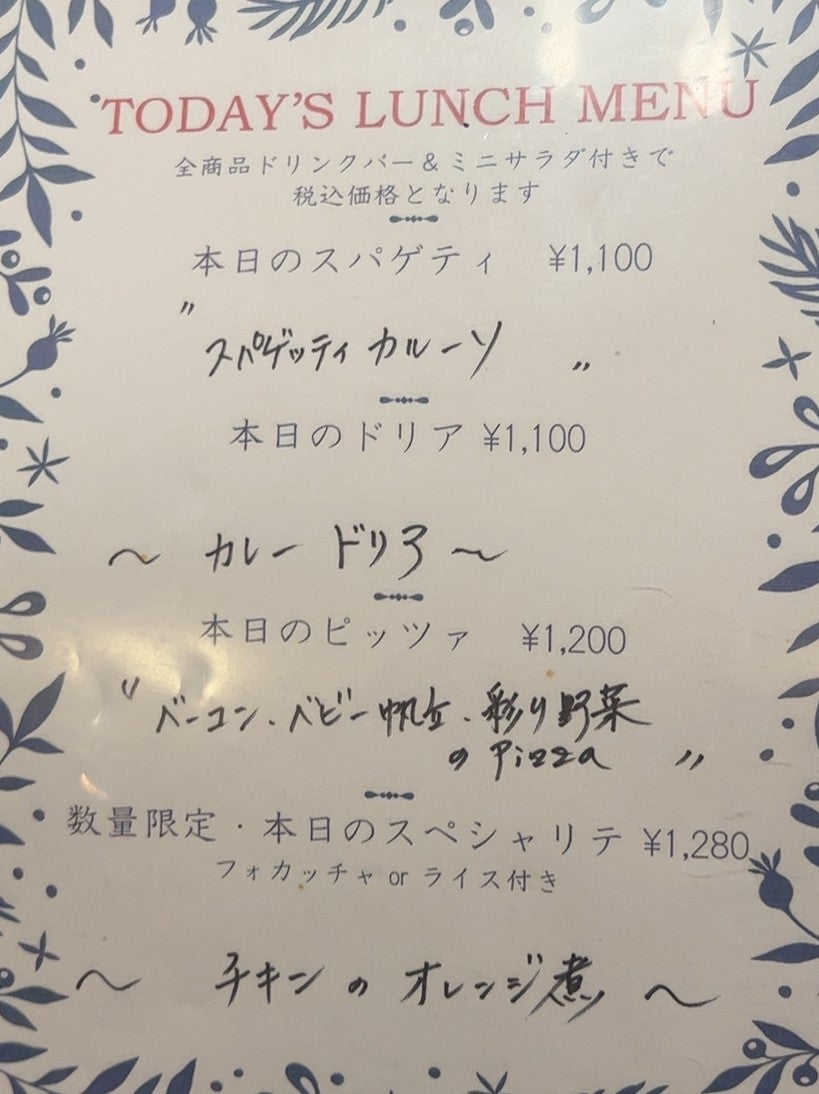 TODAY'S LUNCH MENU
全商品ドリンクバー＆ミニサラダ付きで
税込価格となります
本日のスパゲティ ¥1,100
〃 スパゲッティ カルーソ 〃
本日のドリア ¥1,100
〜 カレー ドリア 〜
本日のピッツァ ¥1,200
〃 ベーコン、ベビー帆立、彩り野菜
の Pizza 〃
数量限定・本日のスペシャリテ ¥1,280
フォカッチャ or ライス付き
〜 チキン の オレンジ煮 〜